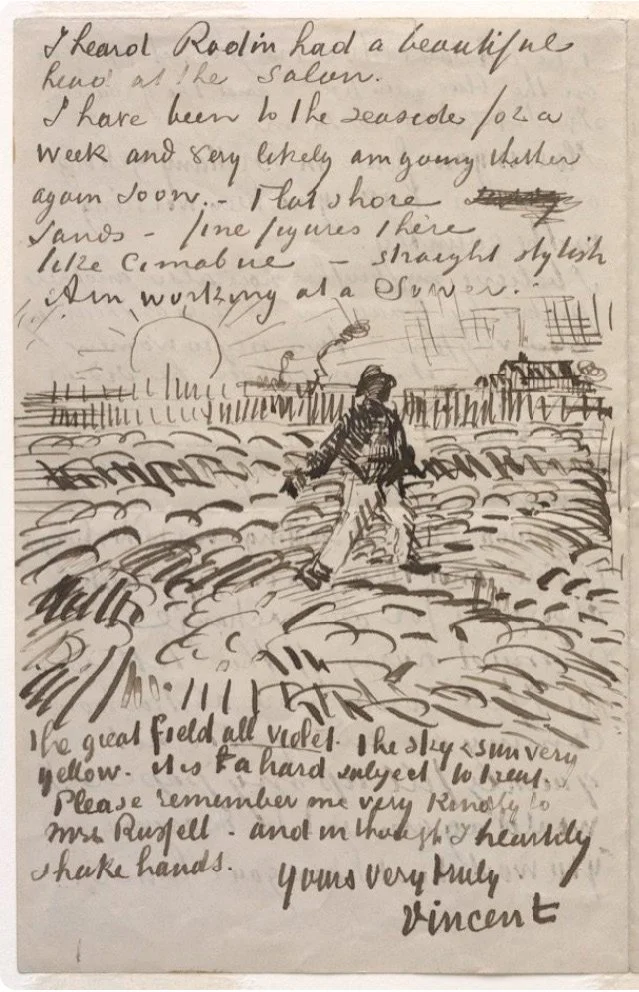 I heard Rodin had a beautiful
head at the Salon.
I have been to the seaside for a
week and very likely am going thither
again soon. - Flat shore
sands - fine figures there
like Cimabue - straight stylish
Am working at a Sower.
the great field all violet. the sky & sun very
yellow. it is a hard subject to treat.
Please remember me very kindly to
mrs Russell - and in thought I heartily
shake hands.
Yours very truly
Vincent